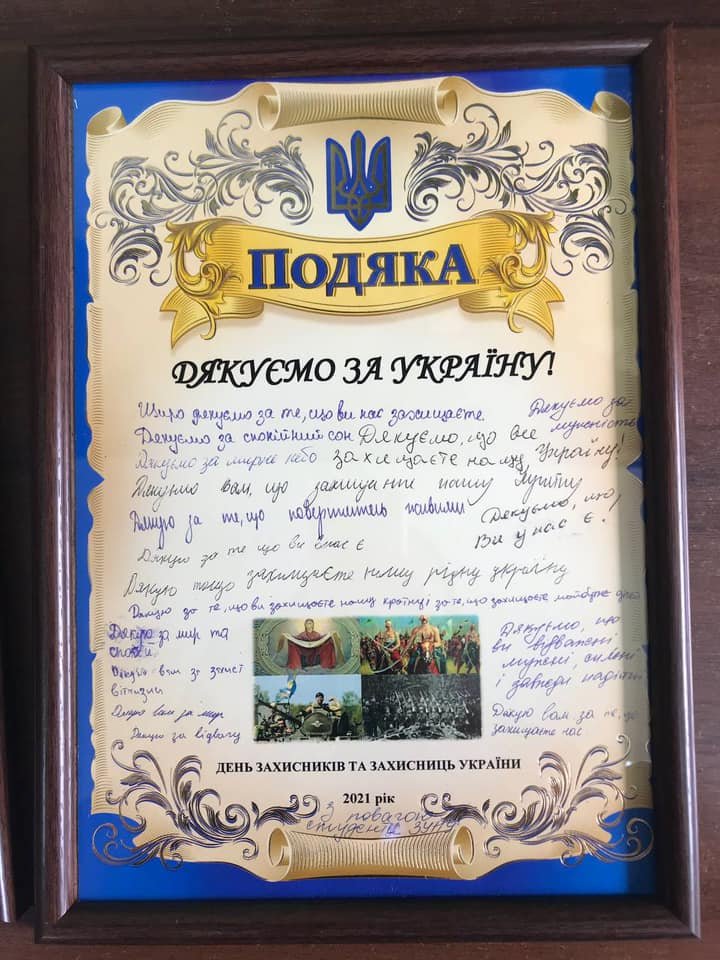 ПОДЯКА
ДЯКУЄМО ЗА УКРАЇНУ!
Щиро дякуємо за те, що ви нас захищаєте
Дякуємо за мужність
Дякуємо за спокійний сон
Дякуємо, що все
захищаєте нашу Україну!
Дякуємо за мирне небо
Дякуємо вам, що захищаєте нашу
Дякую за те, що повертаєтесь живими
Дякуємо, що
Ви у нас є!
Дякую за те що ви у нас є
Дякую тощо захищаєте нашу рідну україну
Дякую за те, що ви захищаєте нашу країну, і за те, що захищаєте майбутнє дітей
Дякую за мир та
спокій
Дякую вам за захист
вітчизни
Дякую вам за мир
Дякую за відвагу
Дякуємо, що
ви відважні
мужні, сильні
і завжди надійні
Дякую вам за те, що
захищаєте нас
ДЕНЬ ЗАХИСНИКІВ ТА ЗАХИСНИЦЬ УКРАЇНИ
2021 рік
з повагою
студенти ЗУНУ